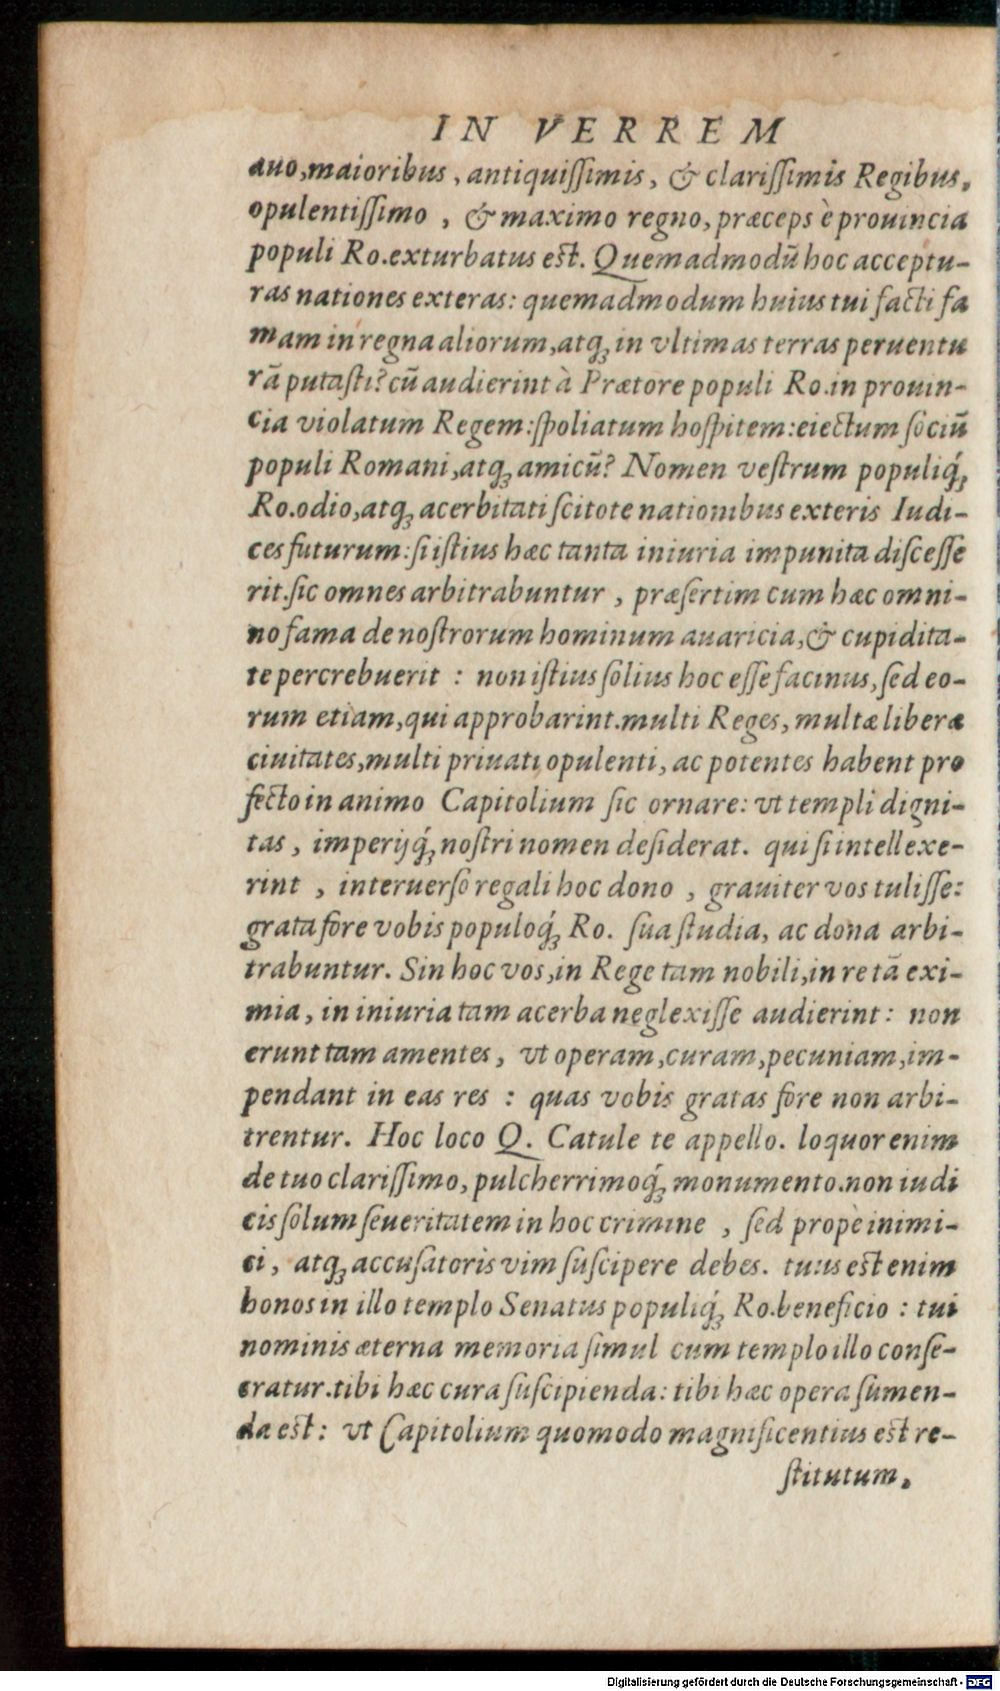 IN VERREM
auo,maioribus, antiquiſſimis, & clariſſimis Regibus,
opulentiſſimo, & maximo regno, præceps è prouincia
populi Ro.exturbatus est. Quemadmodū hoc acceptu-
ras nationes exteras: quemadmodum huius tui facti fa
mam in regna aliorum,atq; in vltimas terras peruentu
rā putaſti? cū audierint à Prætore populi Ro.in prouin-
cia violatum Regem:ſpoliatum hoſpitem:eiectum ſociū
populi Romani,atq; amicū? Nomen veſtrum populiq́;
Ro.odio,atq; acerbitati ſcitote nationibus exteris Iudi-
ces futurum:ſi iſtius hæc tanta iniuria impunita diſceſſe
rit.ſic omnes arbitrabuntur, præſertim cum hæc omni-
no fama de noſtrorum hominum auaricia,& cupidita-
te percrebuerit : non iſtius ſolius hoc eſſe facinus,ſed eo-
rum etiam,qui approbarint.multi Reges, multæ liberæ
ciuitates,multi priuati opulenti, ac potentes habent pro
fecto in animo Capitolium ſic ornare: vt templi digni-
tas, imperijq́; noſtri nomen deſiderat. qui ſi intellexe-
rint, interuerſo regali hoc dono, grauiter vos tuliſſe:
grata fore vobis populoq́; Ro. ſua ſtudia, ac dona arbi-
trabuntur. Sin hoc vos,in Rege tam nobili,in re tā exi-
mia, in iniuria tam acerba neglexiſſe audierint: non
erunt tam amentes, vt operam,curam,pecuniam,im-
pendant in eas res : quas vobis gratas fore non arbi-
trentur. Hoc loco Q. Catule te appello. loquor enim
de tuo clariſſimo, pulcherrimoq́; monumento.non iudi
cis ſolum ſeueritatem in hoc crimine, ſed propè inimi-
ci, atq; accuſatoris vim ſuſcipere debes. tuus est enim
honos in illo templo Senatus populiq́; Ro.beneficio : tui
nominis æterna memoria ſimul cum templo illo conſe-
cratur.tibi hæc cura ſuſcipienda: tibi hæc opera ſumen-
da est: vt Capitolium quomodo magnificentius est re-
ſtitutum,
Digitalisierung gefördert durch die Deutsche Forschungsgemeinschaft - DFG